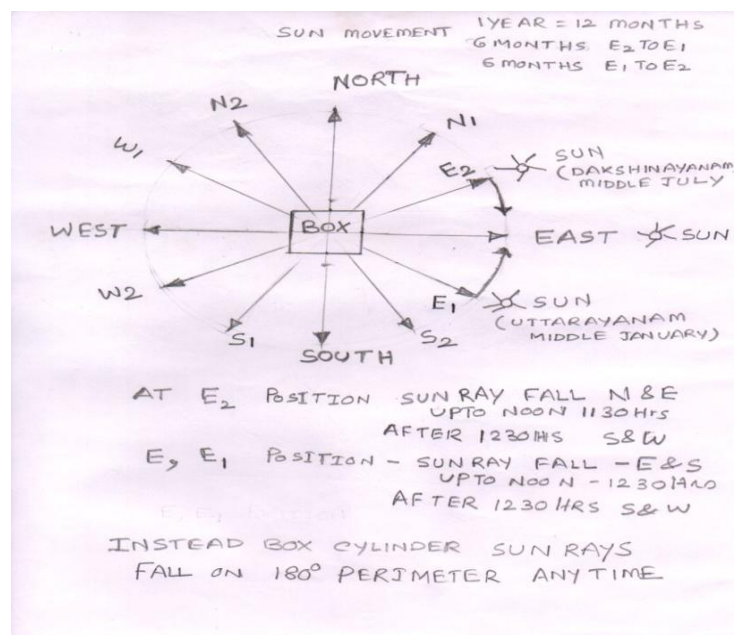 SUN MOVEMENT 1YEAR = 12 MONTHS
6 MONTHS E2 TO E1
6 MONTHS E1 TO E2
NORTH
N2
N1
W1
E2
SUN
(DAKSHINAYANAM
MIDDLE JULY
WEST
BOX
EAST
SUN
W2
E1
SUN
(UTTARAYANAM
MIDDLE JANUARY)
S1
S2
SOUTH
AT E2 POSITION SUN RAY FALL N & E
UPTO NOON 1130 Hrs
AFTER 1230 HRS S & W
E, E1 POSITION - SUN RAY FALL - E & S
UPTO NOON - 1230 Hrs
AFTER 1230 HRS S & W
INSTEAD BOX CYLINDER SUN RAYS
FALL ON 180° PERIMETER ANY TIME